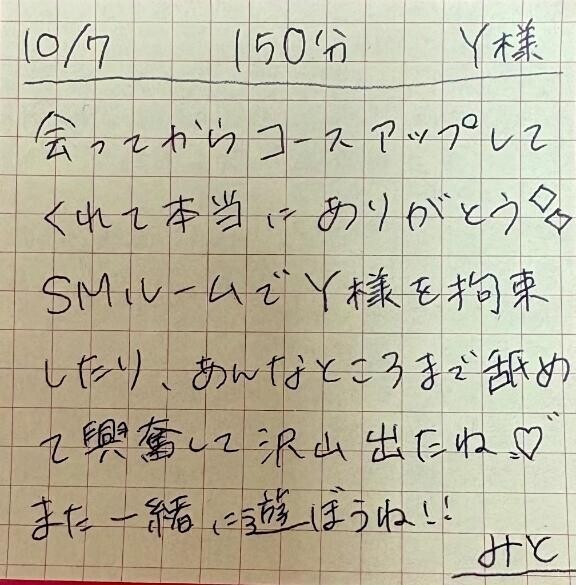 10/7 150分 Y様
会ってからコースアップして
くれて本当にありがとう
SMルームでY様を拘束
したり、あんなところまで舐め
て興奮して沢山出たね♡
また一緒に遊ぼうね!!
みと